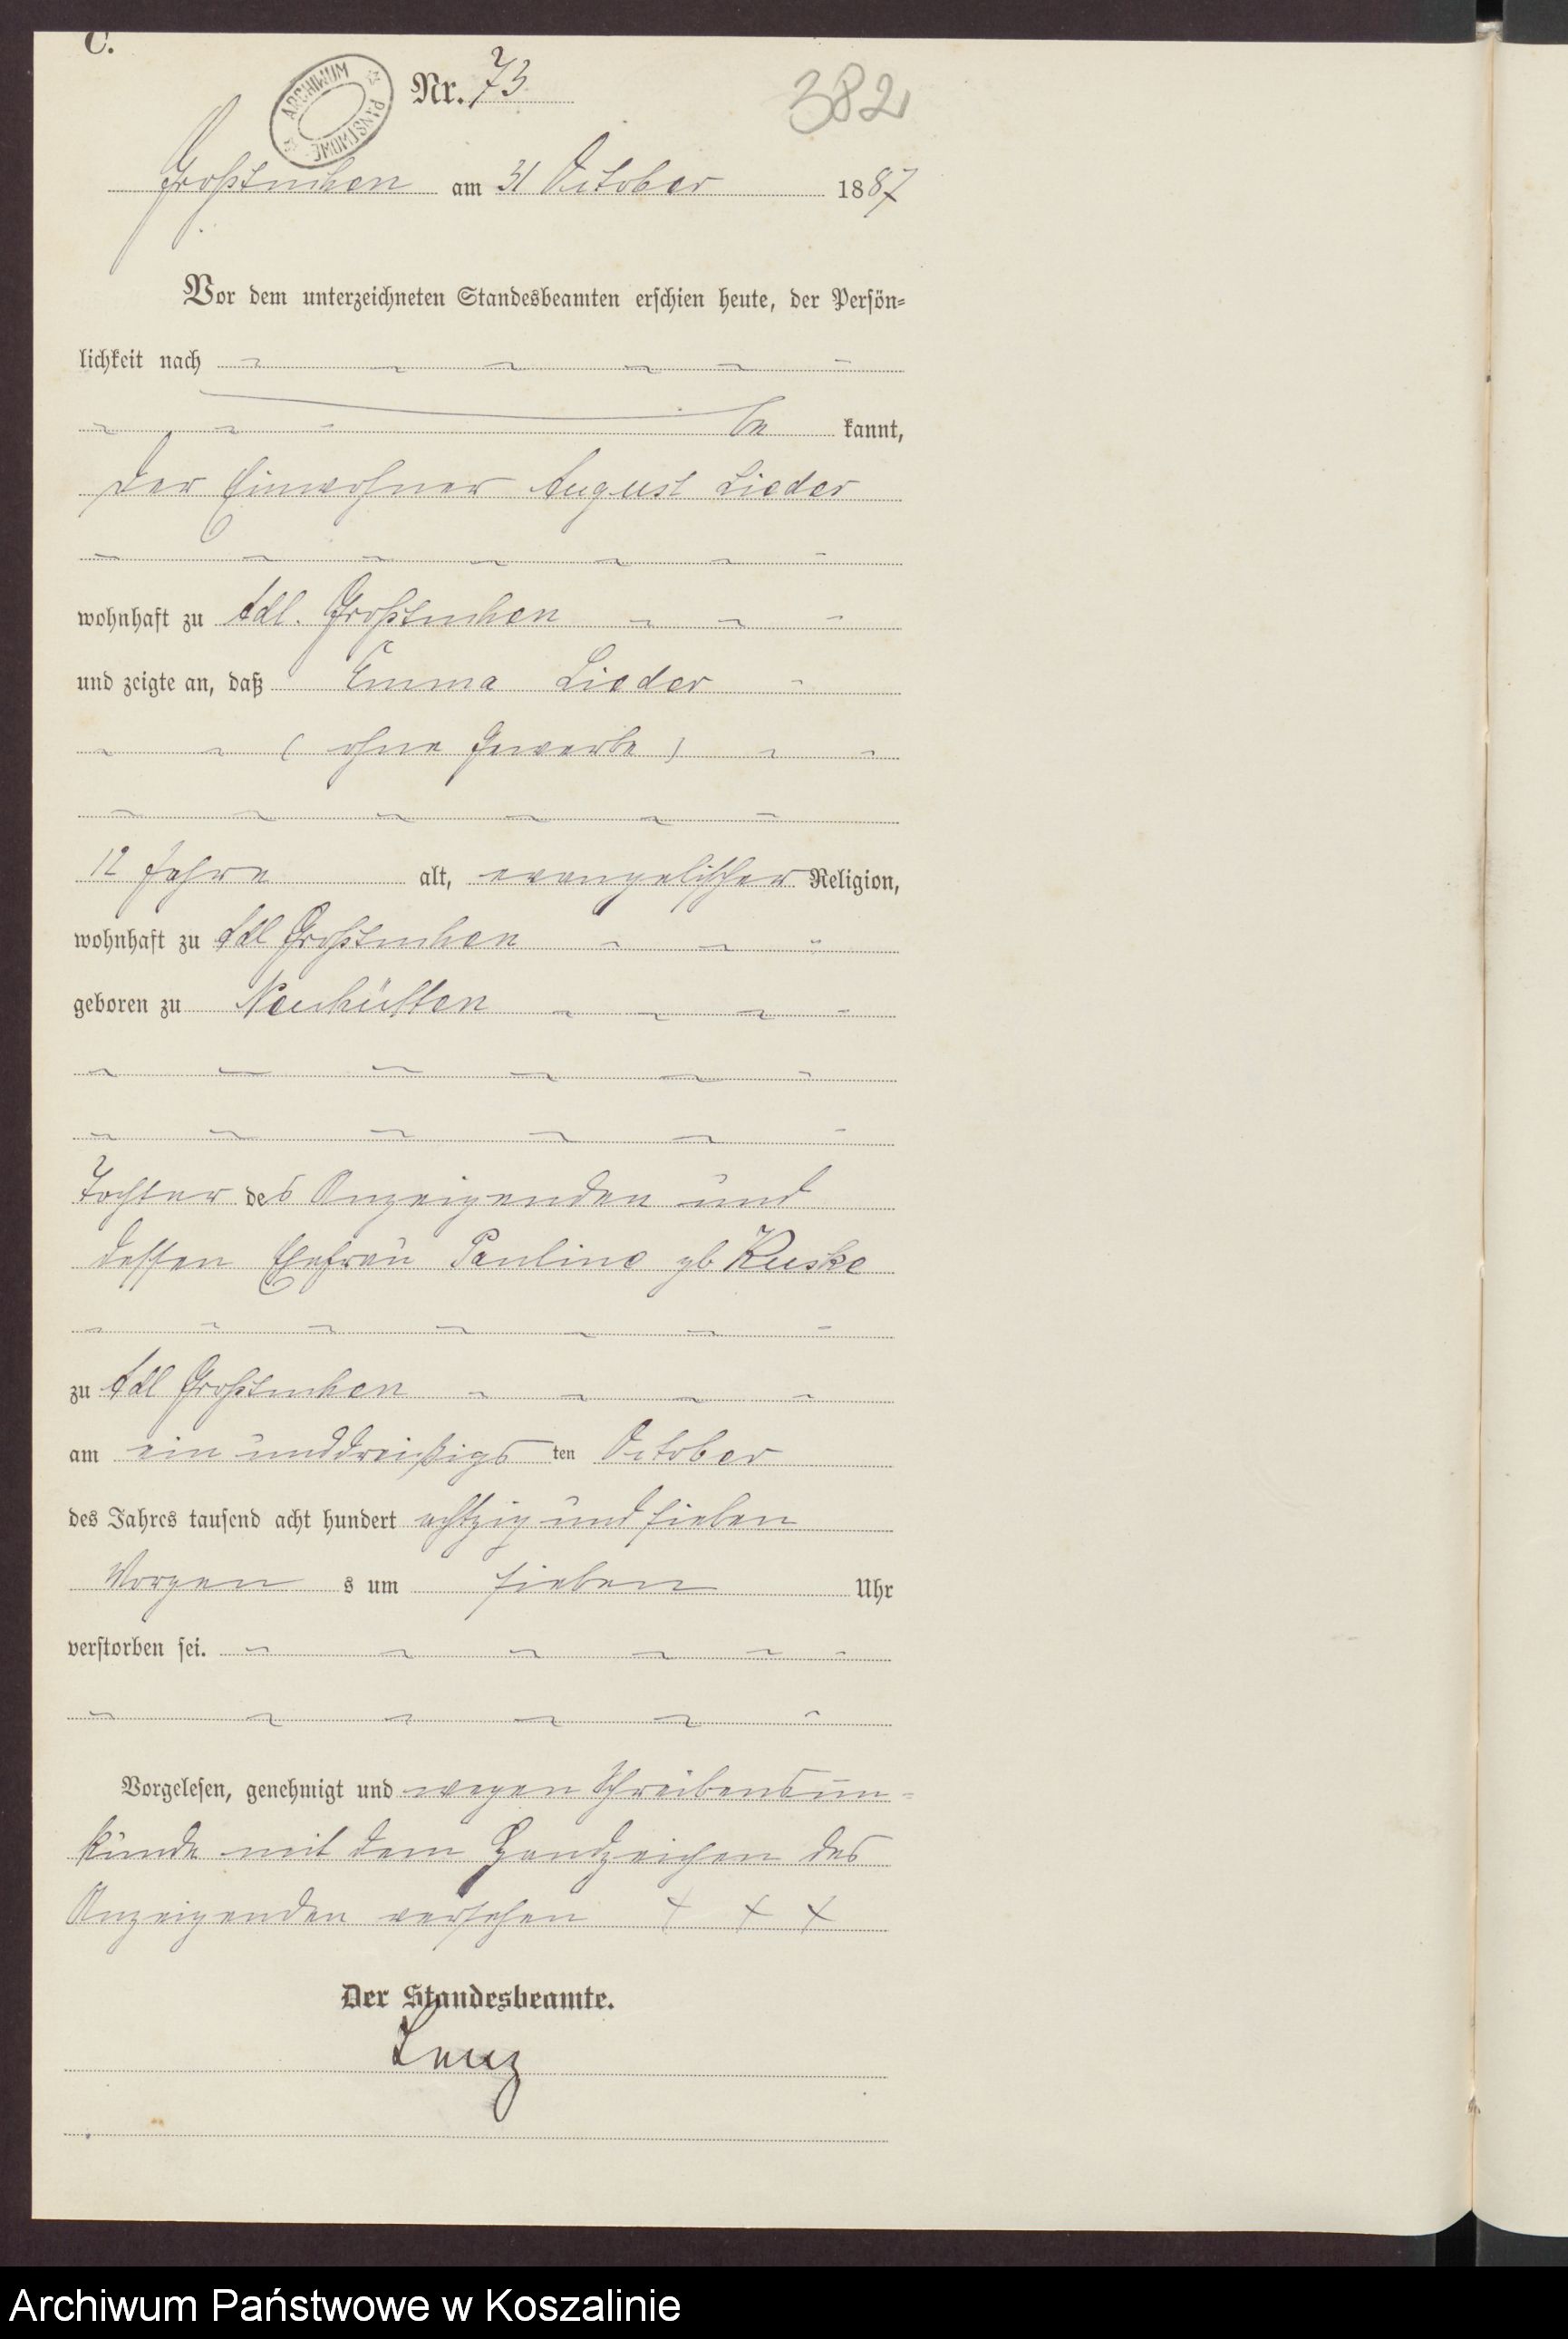 C.
ARCHIWUM PAŃSTWOWE
Nr. 73
382
Großtuchen am 31 October 1887
Vor dem unterzeichneten Standesbeamten erschien heute, der Persön=
lichkeit nach
be kannt,
der Einwohner August Lieder
wohnhaft zu Adl. Großtuchen
und zeigte an, daß Emma Lieder
(ohne Gewerbe)
12 Jahre alt, evangelischer Religion,
wohnhaft zu Adl Großtuchen
geboren zu Neuhütten
Tochter des Anzeigenden und
dessen Ehefrau Pauline gb Kuske
zu Adl Großtuchen
am ein unddreißigsten October
des Jahres tausend acht hundert achtzig und sieben
Morgens um sieben Uhr
verstorben sei.
Vorgelesen, genehmigt und wegen Schreibensun=
kunde mit dem Handzeichen des
Anzeigenden versehen + + +
Der Standesbeamte.
Lenz
Archiwum Państwowe w Koszalinie